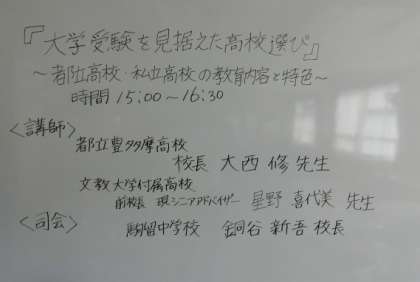 『大学受験を見据えた高校選び』
～都立高校・私立高校の教育内容と特色～
時間 15:00～16:30
<講師>
都立豊多摩高校
校長 大西 修 先生
文教大学付属高校
前校長 現シニアアドバイザー 星野 喜代美 先生
<司会> 駒留中学校 銅谷 新吾 校長